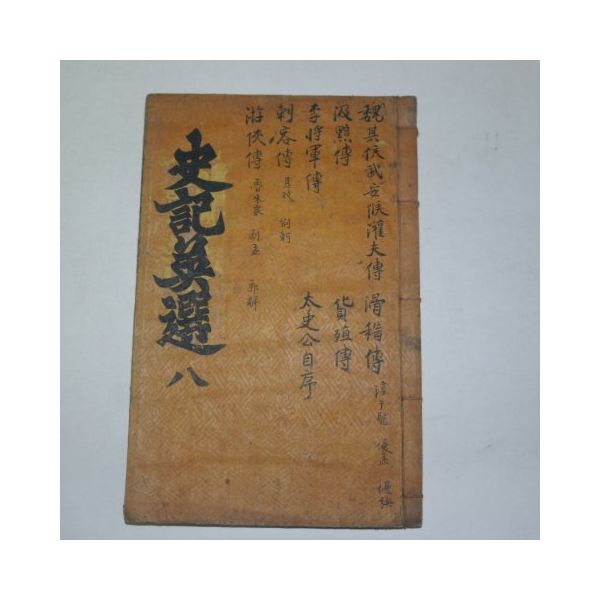 魏其侯武安侯灌夫傳 滑稽傳 淳于髡 優孟 優旃
汲黯傳 貨殖傳
李將軍傳 太史公自序
刺客傳 聶政 荊軻
游俠傳 魯朱家 劇孟 郭解
史記英選 八